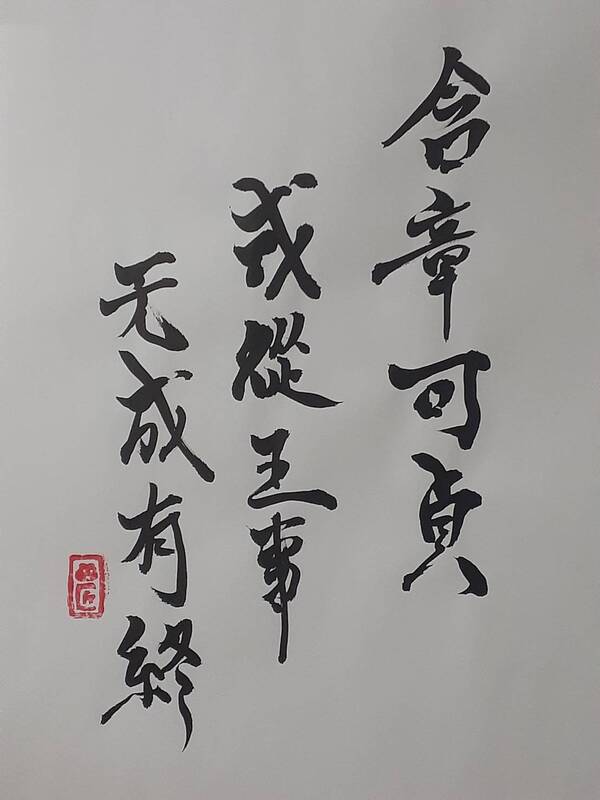 含章可貞
或從王事
无成有終